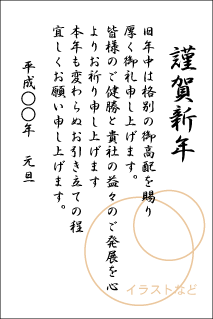 謹賀新年
旧年中は格別の御高配を賜り
厚く御礼申し上げます。
皆様のご健勝と貴社の益々のご発展を心
よりお祈り申し上げます
本年も変わらぬお引き立ての程
宜しくお願い申し上げます。
平成〇〇年 元旦
イラストなど